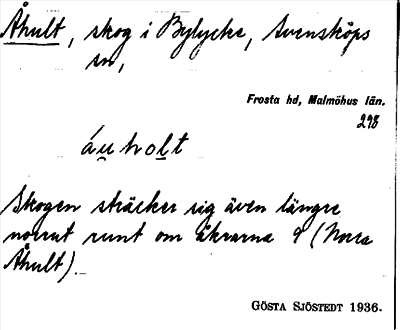 Åhult, skog i Bylycke, Svensköps
sn,
Frosta hd, Malmöhus län.
298
áuholt
Skogen sträcker sig även längre
norrut runt om åkrarna 9 (Norra
Åhult).
GÖSTA SJÖSTEDT 1936.